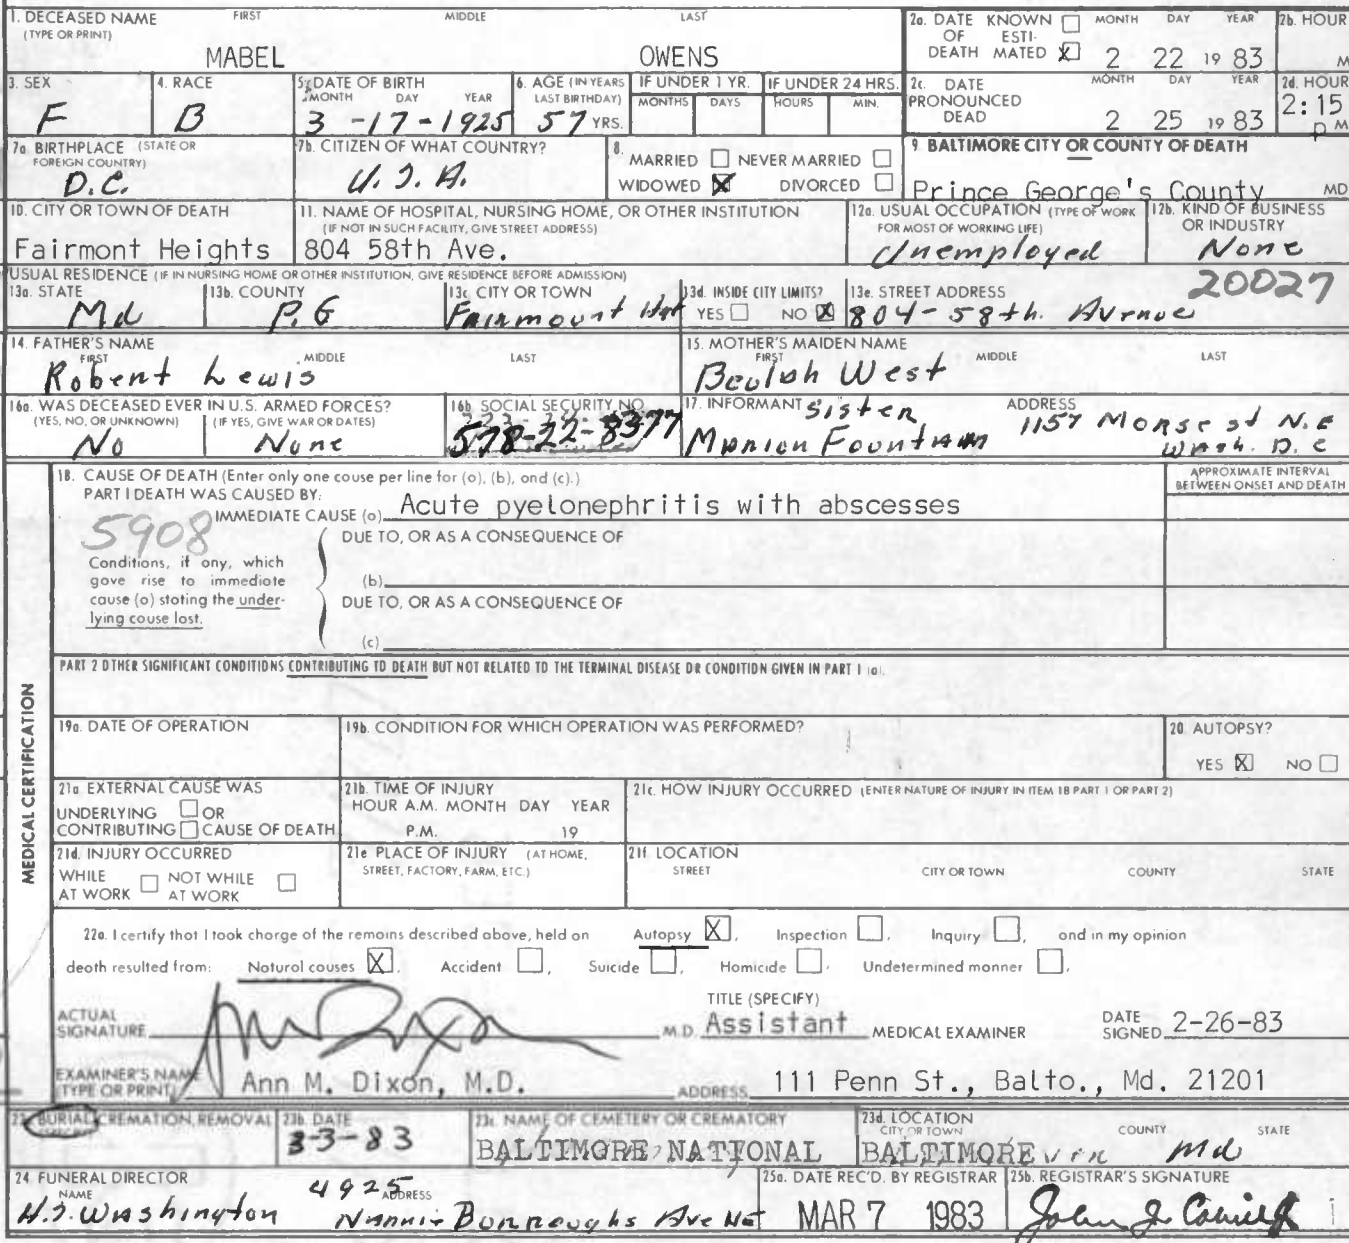 1. DECEASED NAME FIRST MIDDLE LAST
(TYPE OR PRINT)
MABEL OWENS
2a. DATE OF DEATH KNOWN ☐ ESTIMATED ☒ MONTH DAY YEAR 2 22 19 83
2b. HOUR M
3. SEX F
4. RACE B
5. DATE OF BIRTH MONTH DAY YEAR 3-17-1925
6. AGE (IN YEARS LAST BIRTHDAY) 57 YRS.
IF UNDER 1 YR. MONTHS DAYS
IF UNDER 24 HRS. HOURS MIN.
2c. DATE PRONOUNCED DEAD MONTH DAY YEAR 2 25 19 83
2d. HOUR 2:15 P M
7a. BIRTHPLACE (STATE OR FOREIGN COUNTRY) D.C.
7b. CITIZEN OF WHAT COUNTRY? U.S.A.
8. MARRIED ☐ NEVER MARRIED ☐
WIDOWED ☒ DIVORCED ☐
9. BALTIMORE CITY OR COUNTY OF DEATH
Prince George's County MD
10. CITY OR TOWN OF DEATH
Fairmont Heights
11. NAME OF HOSPITAL, NURSING HOME, OR OTHER INSTITUTION
(IF NOT IN SUCH FACILITY, GIVE STREET ADDRESS)
804 58th Ave.
12a. USUAL OCCUPATION (TYPE OF WORK FOR MOST OF WORKING LIFE)
Unemployed
12b. KIND OF BUSINESS OR INDUSTRY
None
USUAL RESIDENCE (IF IN NURSING HOME OR OTHER INSTITUTION, GIVE RESIDENCE BEFORE ADMISSION)
13a. STATE Md
13b. COUNTY P.G
13c. CITY OR TOWN Fairmount Hgt
13d. INSIDE CITY LIMITS? YES ☐ NO ☒
13e. STREET ADDRESS 20027
804-58th. Avenue
14. FATHER'S NAME FIRST MIDDLE LAST
Robert Lewis
15. MOTHER'S MAIDEN NAME FIRST MIDDLE LAST
Beulah West
16a. WAS DECEASED EVER IN U.S. ARMED FORCES?
(YES, NO, OR UNKNOWN) (IF YES, GIVE WAR OR DATES)
No None
16b. SOCIAL SECURITY NO.
578-22-8377
17. INFORMANT Sister ADDRESS
Marion Fountain 1157 Morse st N.E
Wash. D.C
18. CAUSE OF DEATH (Enter only one couse per line for (o), (b), ond (c).)
APPROXIMATE INTERVAL BETWEEN ONSET AND DEATH
PART I DEATH WAS CAUSED BY:
IMMEDIATE CAUSE (o) Acute pyelonephritis with abscesses
5908
DUE TO, OR AS A CONSEQUENCE OF
Conditions, if ony, which
gove rise to immediote
couse (o) stoting the under-
lying couse lost.
(b)
DUE TO, OR AS A CONSEQUENCE OF
(c)
PART 2 OTHER SIGNIFICANT CONDITIONS CONTRIBUTING TO DEATH BUT NOT RELATED TO THE TERMINAL DISEASE OR CONDITION GIVEN IN PART I (o).
MEDICAL CERTIFICATION
19a. DATE OF OPERATION
19b. CONDITION FOR WHICH OPERATION WAS PERFORMED?
20. AUTOPSY?
YES ☒ NO ☐
21a. EXTERNAL CAUSE WAS
UNDERLYING ☐ OR
CONTRIBUTING ☐ CAUSE OF DEATH
21b. TIME OF INJURY
HOUR A.M. MONTH DAY YEAR
P.M. 19
21c. HOW INJURY OCCURRED (ENTER NATURE OF INJURY IN ITEM 18 PART 1 OR PART 2)
21d. INJURY OCCURRED
WHILE AT WORK ☐ NOT WHILE AT WORK ☐
21e. PLACE OF INJURY (AT HOME, STREET, FACTORY, FARM, ETC.)
21f. LOCATION
STREET CITY OR TOWN COUNTY STATE
22a. I certify thot I took chorge of the remoins described obove, held on Autopsy ☒, Inspection ☐, Inquiry ☐, ond in my opinion
deoth resulted from: Noturol couses ☒, Accident ☐, Suicide ☐, Homicide ☐, Undetermined monner ☐.
ACTUAL SIGNATURE Ann Dixon M.D.
TITLE (SPECIFY) Assistant MEDICAL EXAMINER
DATE SIGNED 2-26-83
EXAMINER'S NAME (TYPE OR PRINT) Ann M. Dixon, M.D.
ADDRESS 111 Penn St., Balto., Md. 21201
BURIAL, CREMATION, REMOVAL
23b. DATE 3-3-83
23c. NAME OF CEMETERY OR CREMATORY
BALTIMORE NATIONAL
23d. LOCATION CITY OR TOWN COUNTY STATE
BALTIMORE Md
24. FUNERAL DIRECTOR
NAME ADDRESS
H.S. Washington 4925 Nannie Burroughs Ave NE
25a. DATE REC'D. BY REGISTRAR
MAR 7 1983
25b. REGISTRAR'S SIGNATURE
John J.